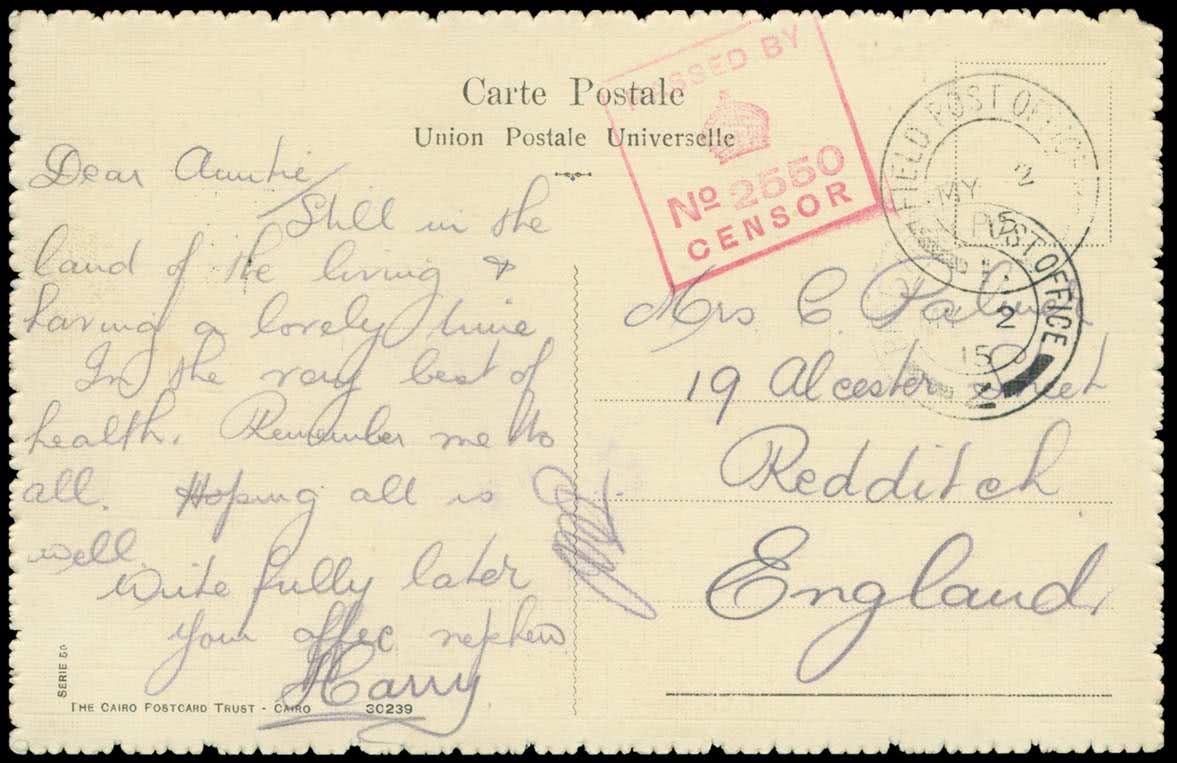 Carte Postale
Union Postale Universelle
PASSED BY
No 2550
CENSOR
FIELD POST OFFICE
MY 2
15
POST OFFICE
2
15
Dear Auntie
Still in the
land of the living &
having a lovely time
In the very best of
health. Remember me to
all. Hoping all is
well.
Write fully later
Your affec nephew
Harry
Mrs C. Palmer
19 Alcester Street
Redditch
England.
SERIE
THE CAIRO POSTCARD TRUST - CAIRO 30239